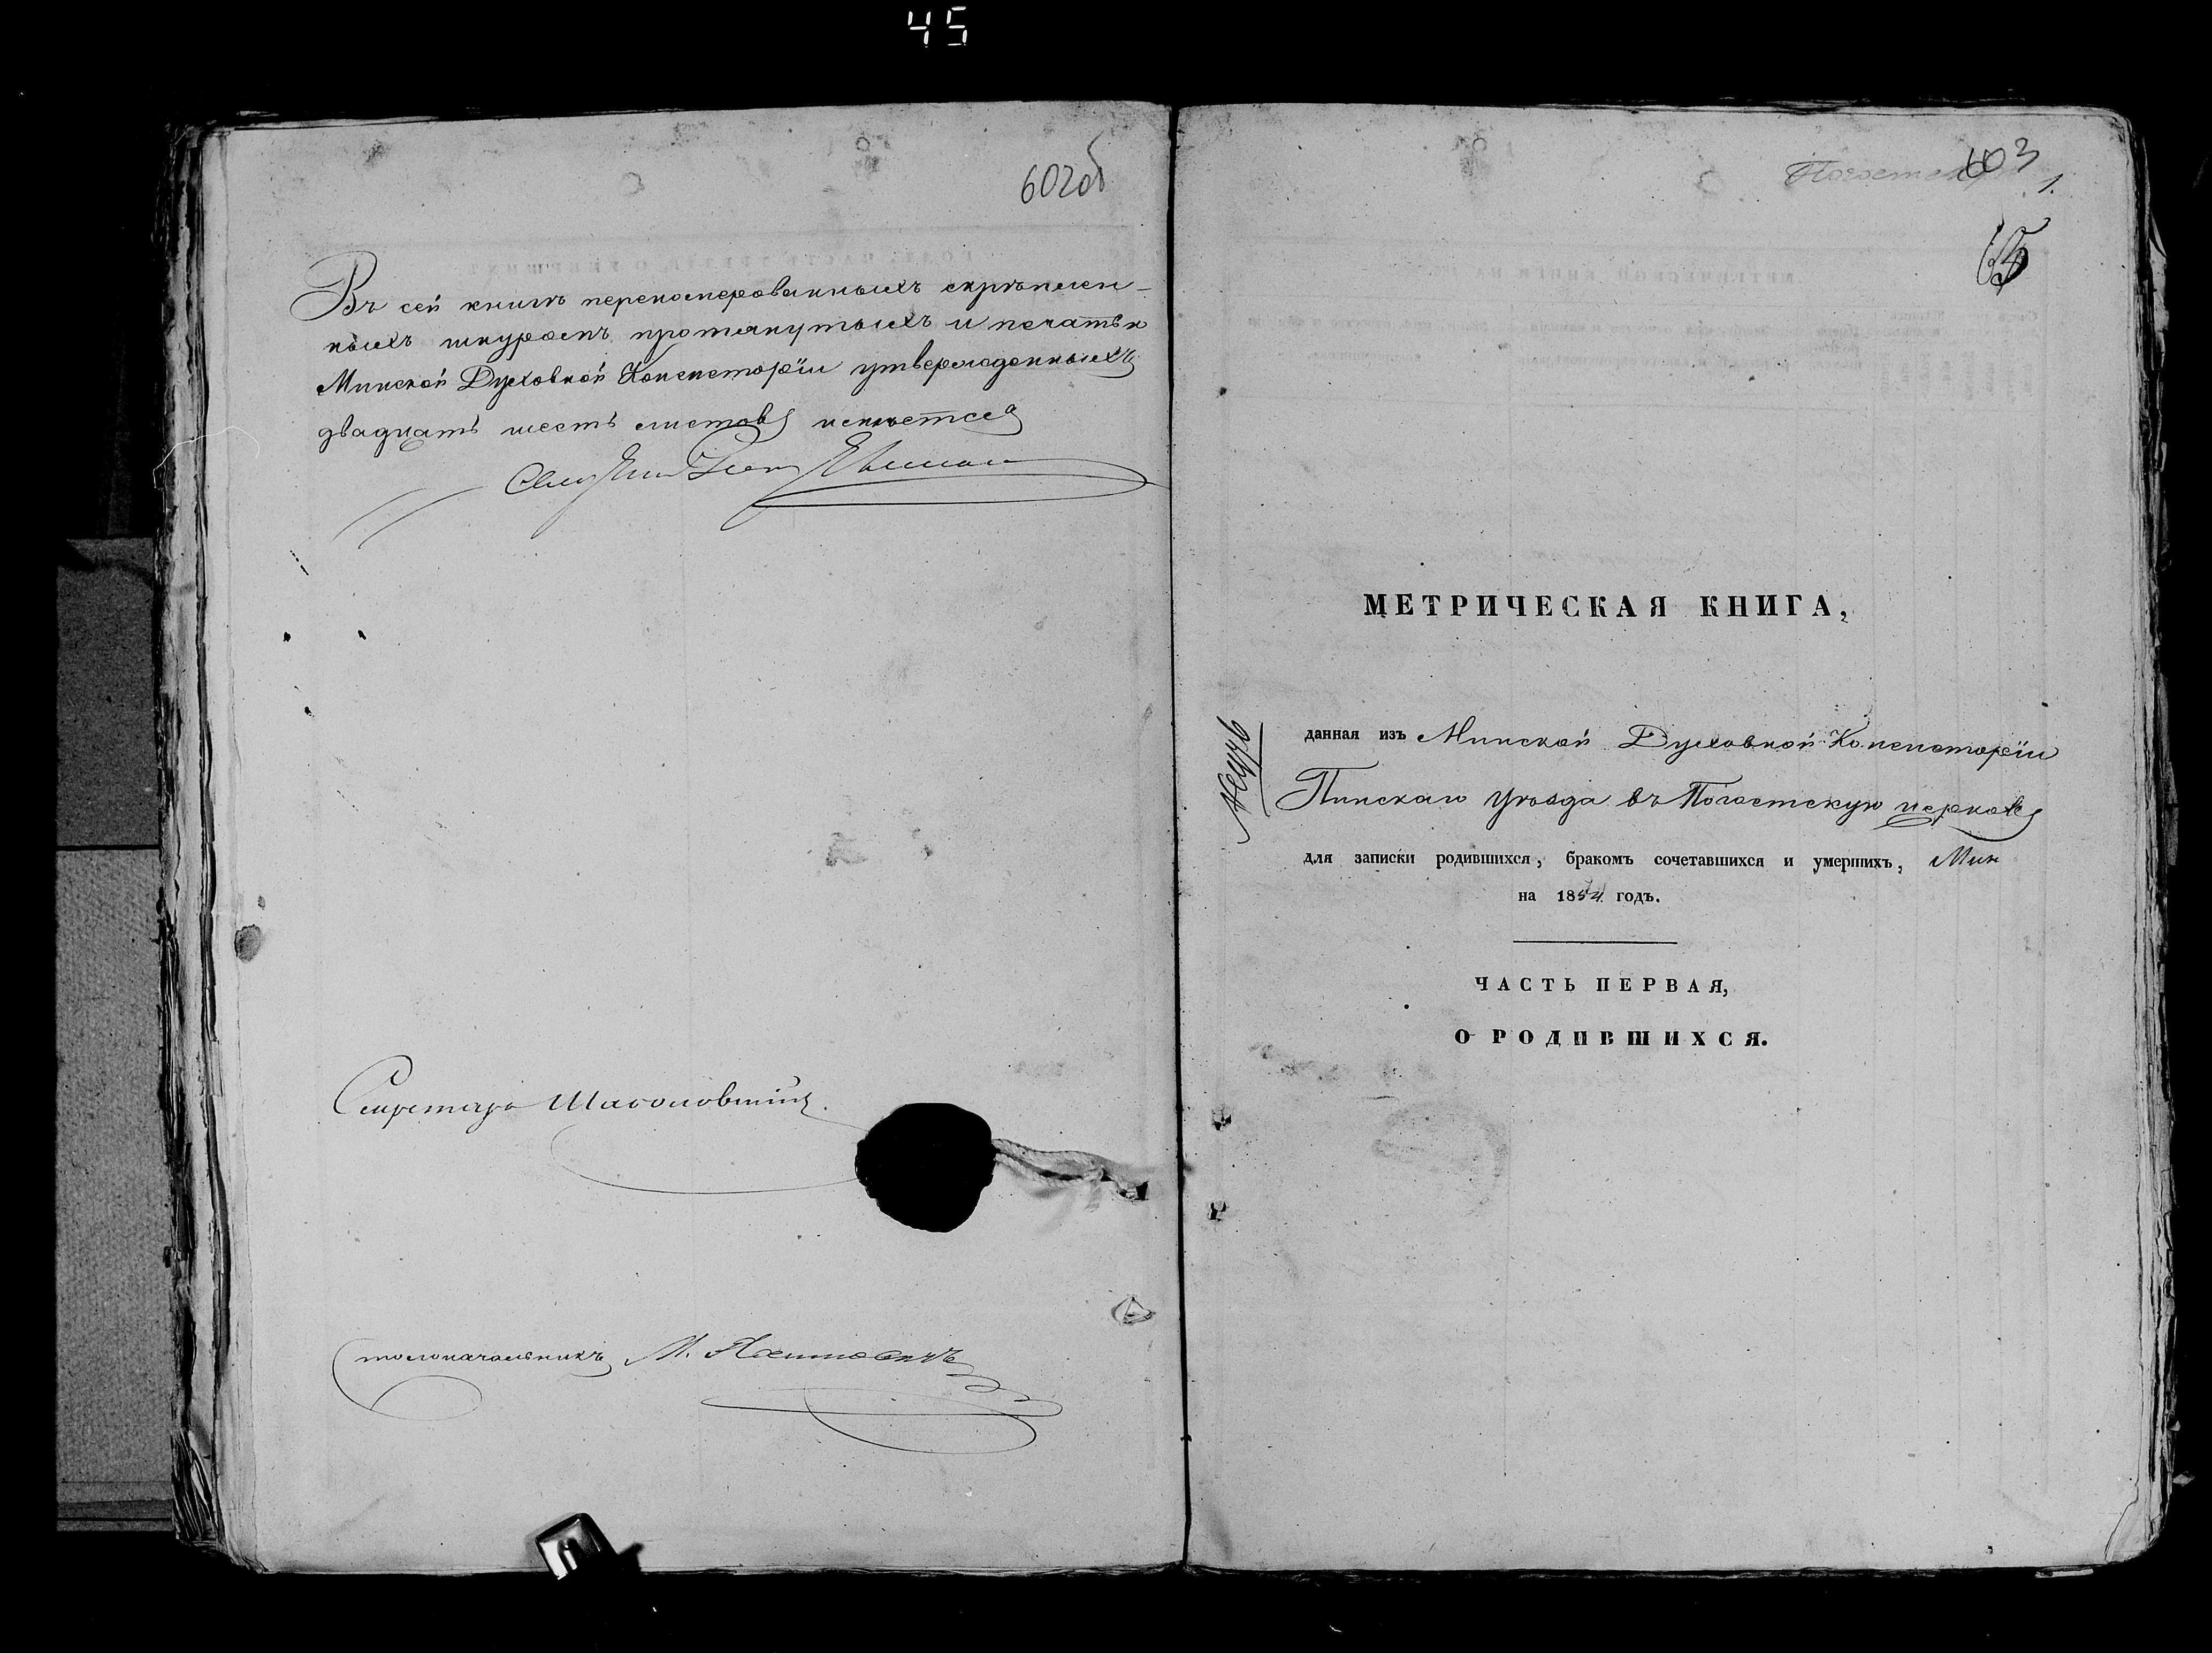 45
602об
Въ сей книгѣ переномерованныхъ скрѣплен-
ныхъ шнуромъ протянутыхъ и печатью
Минской Духовной Консисторіи утвержденныхъ
двадцать шесть листовъ имѣется
Секретарь
столоначальникъ М.
603
1.
МЕТРИЧЕСКАЯ КНИГА,
данная изъ Минской Духовной Консисторіи
Пинскаго Уѣзда въ Погостскую церковь
для записки родившихся, бракомъ сочетавшихся и умершихъ, Мин
на 1854 годъ.
ЧАСТЬ ПЕРВАЯ,
О РОДИВШИХСЯ.